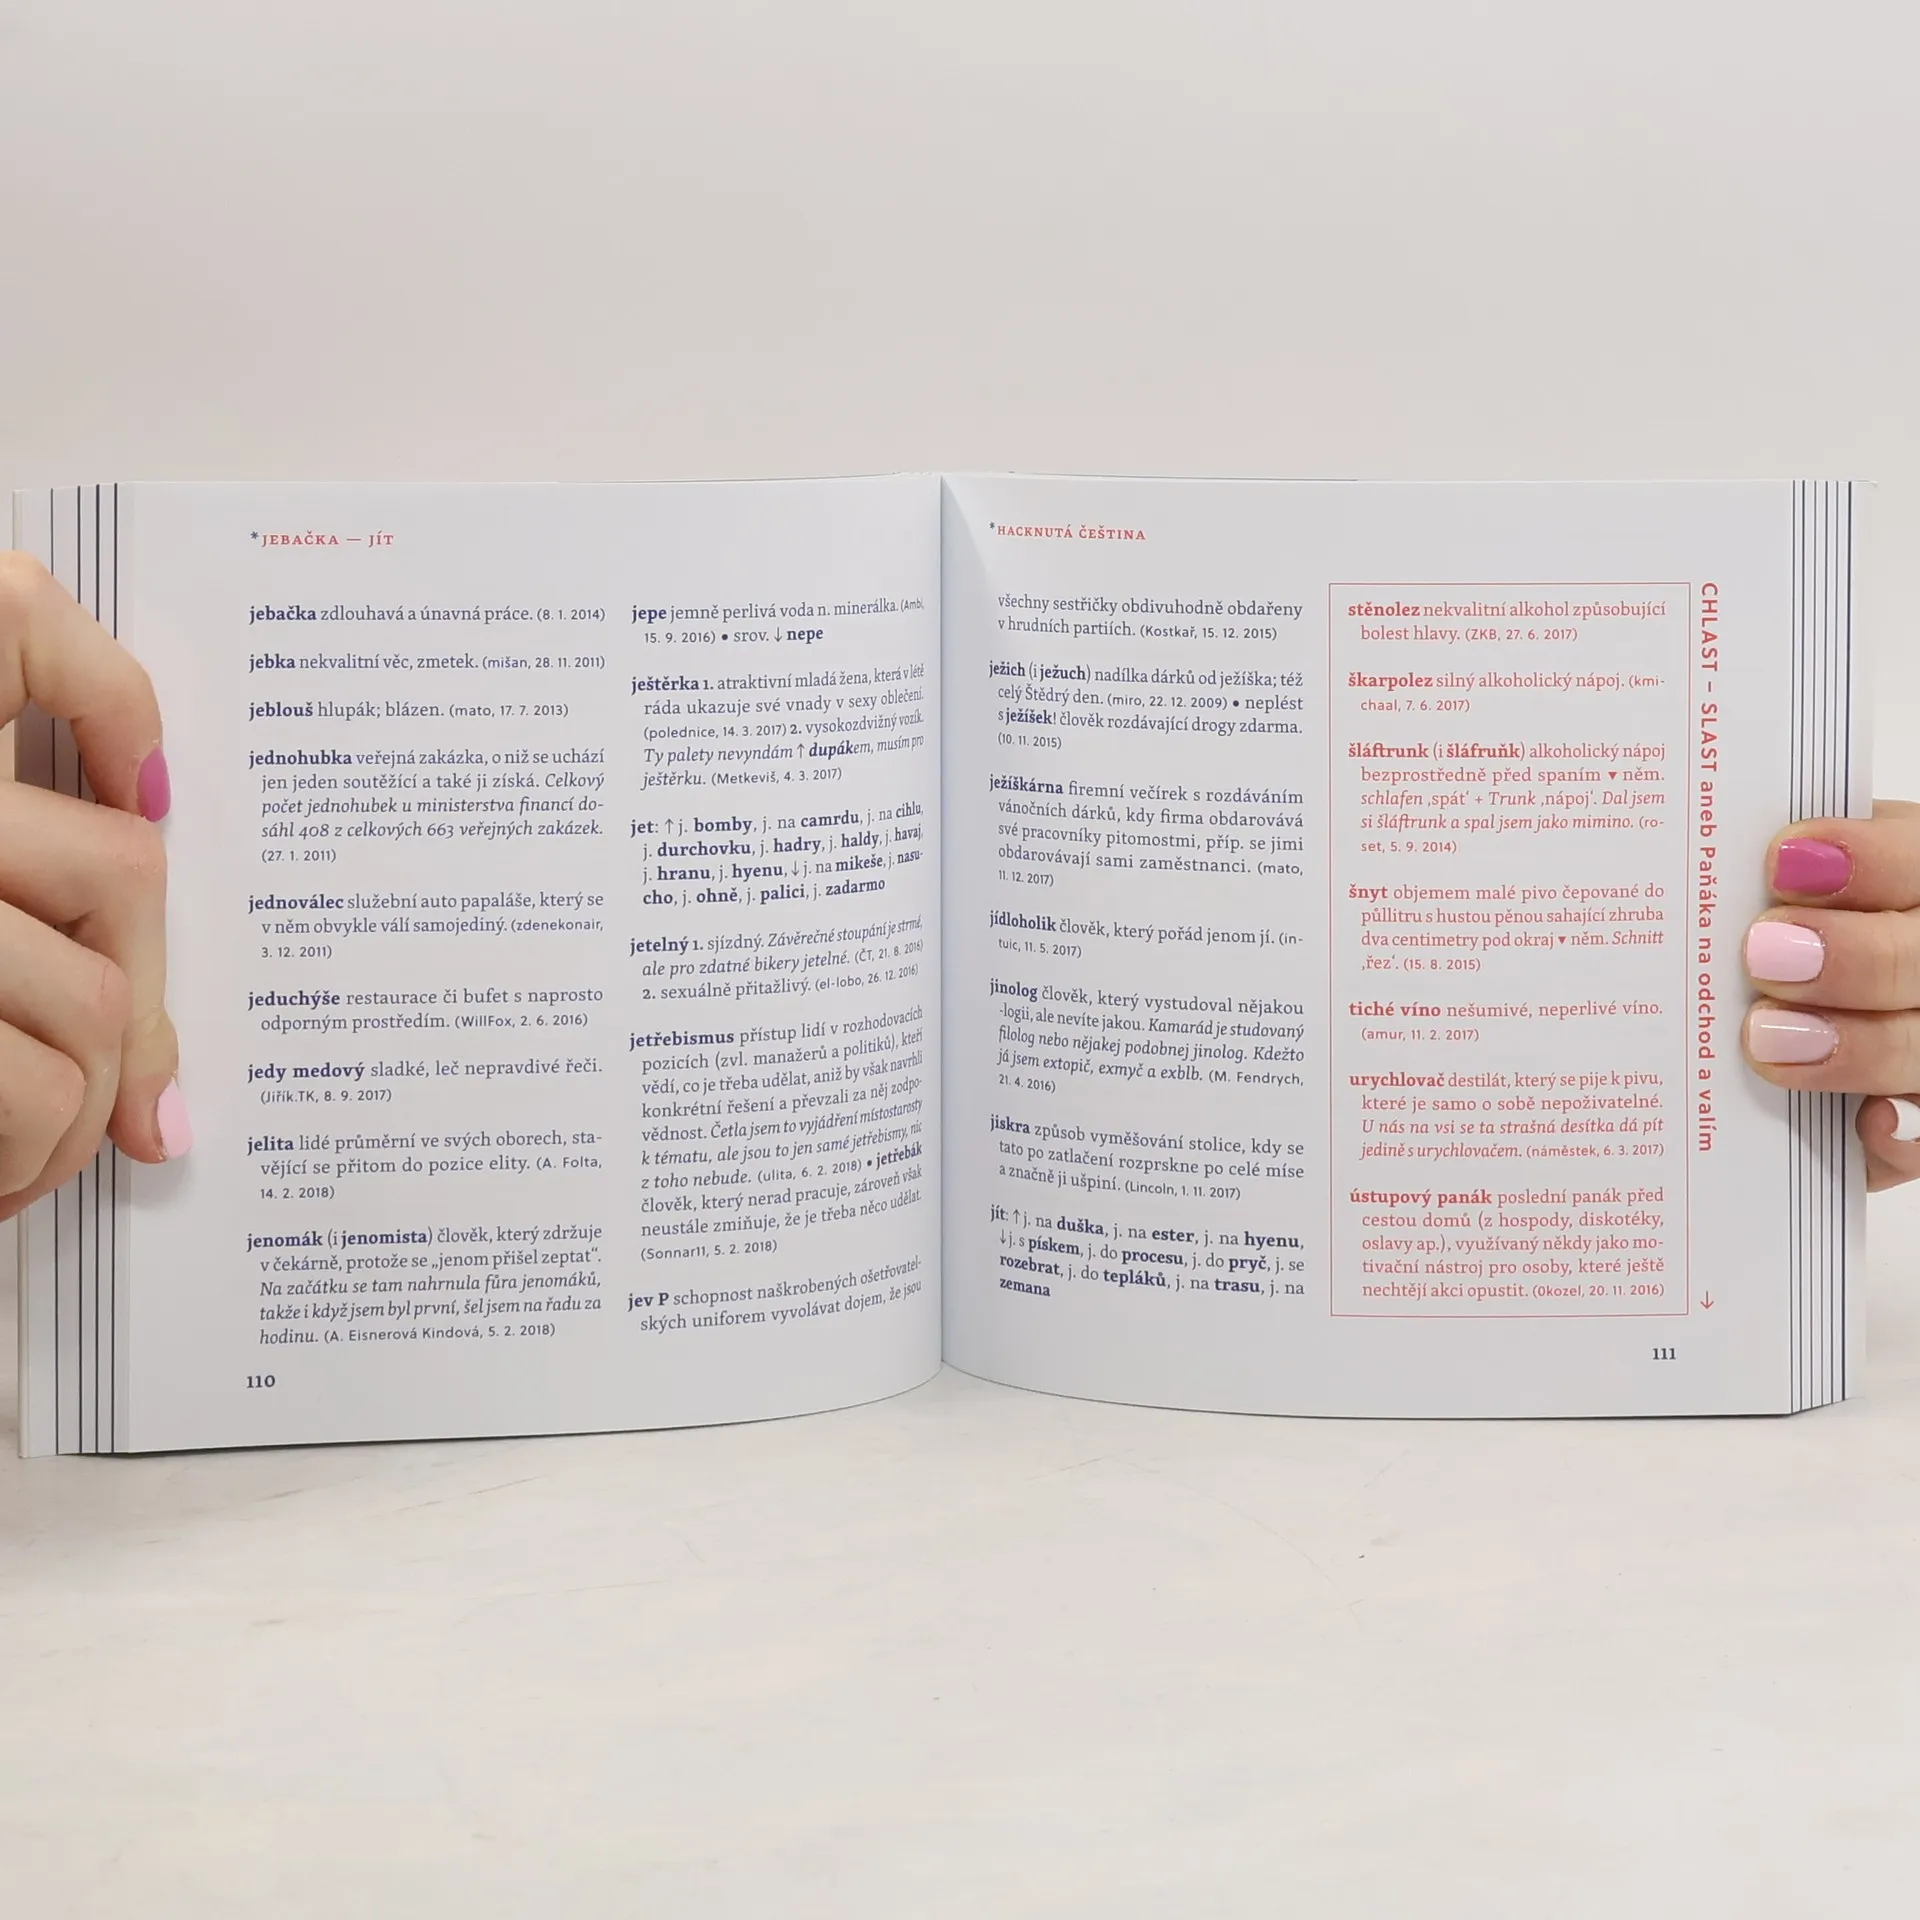 *JEBAČKA — JÍT
jebačka zdlouhavá a únavná práce. (8. 1. 2014)
jebka nekvalitní věc, zmetek. (mišan, 28. 11. 2011)
jeblouš hlupák; blázen. (mato, 17. 7. 2013)
jednohubka veřejná zakázka, o niž se uchází
jen jeden soutěžící a také ji získá. Celkový
počet jednohubek u ministerstva financí do-
sáhl 408 z celkových 663 veřejných zakázek.
(27. 1. 2011)
jednoválec služební auto papaláše, který se
v něm obvykle válí samojediný. (zdenekonair,
3. 12. 2011)
jeduchýše restaurace či bufet s naprosto
odporným prostředím. (WillFox, 2. 6. 2016)
jedy medový sladké, leč nepravdivé řeči.
(Jiřík.TK, 8. 9. 2017)
jelita lidé průměrní ve svých oborech, sta-
vějící se přitom do pozice elity. (A. Folta,
14. 2. 2018)
jenomák (i jenomista) člověk, který zdržuje
v čekárně, protože se „jenom přišel zeptat“.
Na začátku se tam nahrnula fůra jenomáků,
takže i když jsem byl první, šel jsem na řadu za
hodinu. (A. Eisnerová Kindová, 5. 2. 2018)
110
jepe jemně perlivá voda n. minerálka. (Ambi,
15. 9. 2016) • srov. ↓ nepe
ještěrka 1. atraktivní mladá žena, která v létě
ráda ukazuje své vnady v sexy oblečení.
(polednice, 14. 3. 2017) 2. vysokozdvižný vozík.
Ty palety nevyndám ↑ dupákem, musím pro
ještěrku. (Metkeviš, 4. 3. 2017)
jet: ↑ j. bomby, j. na camrdu, j. na cihlu,
j. durchovku, j. hadry, j. haldy, j. havaj,
j. hranu, j. hyenu, ↓ j. na mikeše, j. nasu-
cho, j. ohně, j. palici, j. zadarmo
jetelný 1. sjízdný. Závěrečné stoupání je strmé,
ale pro zdatné bikery jetelné. (ČT, 21. 8. 2016)
2. sexuálně přitažlivý. (el-lobo, 26. 12. 2016)
jetřebismus přístup lidí v rozhodovacích
pozicích (zvl. manažerů a politiků), kteří
vědí, co je třeba udělat, aniž by však navrhli
konkrétní řešení a převzali za něj zodpo-
vědnost. Četla jsem to vyjádření místostarosty
k tématu, ale jsou to jen samé jetřebismy, nic
z toho nebude. (ulita, 6. 2. 2018) • jetřebák
člověk, který nerad pracuje, zároveň však
neustále zmiňuje, že je třeba něco udělat.
(Sonnar11, 5. 2. 2018)
jev P schopnost naškrobených ošetřovatel-
ských uniforem vyvolávat dojem, že jsou
*HACKNUTÁ ČEŠTINA
všechny sestřičky obdivuhodně obdařeny
v hrudních partiích. (Kostkař, 15. 12. 2015)
ježich (i ježuch) nadílka dárků od ježíška; též
celý Štědrý den. (miro, 22. 12. 2009) • neplést
s ježíšek! člověk rozdávající drogy zdarma.
(10. 11. 2015)
ježíškárna firemní večírek s rozdáváním
vánočních dárků, kdy firma obdarovává
své pracovníky pitomostmi, příp. se jimi
obdarovávají sami zaměstnanci. (mato,
11. 12. 2017)
jídloholik člověk, který pořád jenom jí. (in-
tuic, 11. 5. 2017)
jinolog člověk, který vystudoval nějakou
-logii, ale nevíte jakou. Kamarád je studovaný
filolog nebo nějakej podobnej jinolog. Kdežto
já jsem extopič, exmyč a exblb. (M. Fendrych,
21. 4. 2016)
jiskra způsob vyměšování stolice, kdy se
tato po zatlačení rozprskne po celé míse
a značně ji ušpiní. (Lincoln, 1. 11. 2017)
jít: ↑ j. na duška, j. na ester, j. na hyenu,
↓ j. s pískem, j. do procesu, j. do pryč, j. se
rozebrat, j. do tepláků, j. na trasu, j. na
zemana
stěnolez nekvalitní alkohol způsobující
bolest hlavy. (ZKB, 27. 6. 2017)
škarpolez silný alkoholický nápoj. (kmi-
chaal, 7. 6. 2017)
šláftrunk (i šláfruňk) alkoholický nápoj
bezprostředně před spaním ▾ něm.
schlafen ‚spát‘ + Trunk ‚nápoj‘. Dal jsem
si šláftrunk a spal jsem jako mimino. (ro-
set, 5. 9. 2014)
šnyt objemem malé pivo čepované do
půllitru s hustou pěnou sahající zhruba
dva centimetry pod okraj ▾ něm. Schnitt
‚řez‘. (15. 8. 2015)
tiché víno nešumivé, neperlivé víno.
(amur, 11. 2. 2017)
urychlovač destilát, který se pije k pivu,
které je samo o sobě nepoživatelné.
U nás na vsi se ta strašná desítka dá pít
jedině s urychlovačem. (náměstek, 6. 3. 2017)
ústupový panák poslední panák před
cestou domů (z hospody, diskotéky,
oslavy ap.), využívaný někdy jako mo-
tivační nástroj pro osoby, které ještě
nechtějí akci opustit. (Okozel, 20. 11. 2016)
CHLAST – SLAST aneb Paňáka na odchod a valím
↓
111